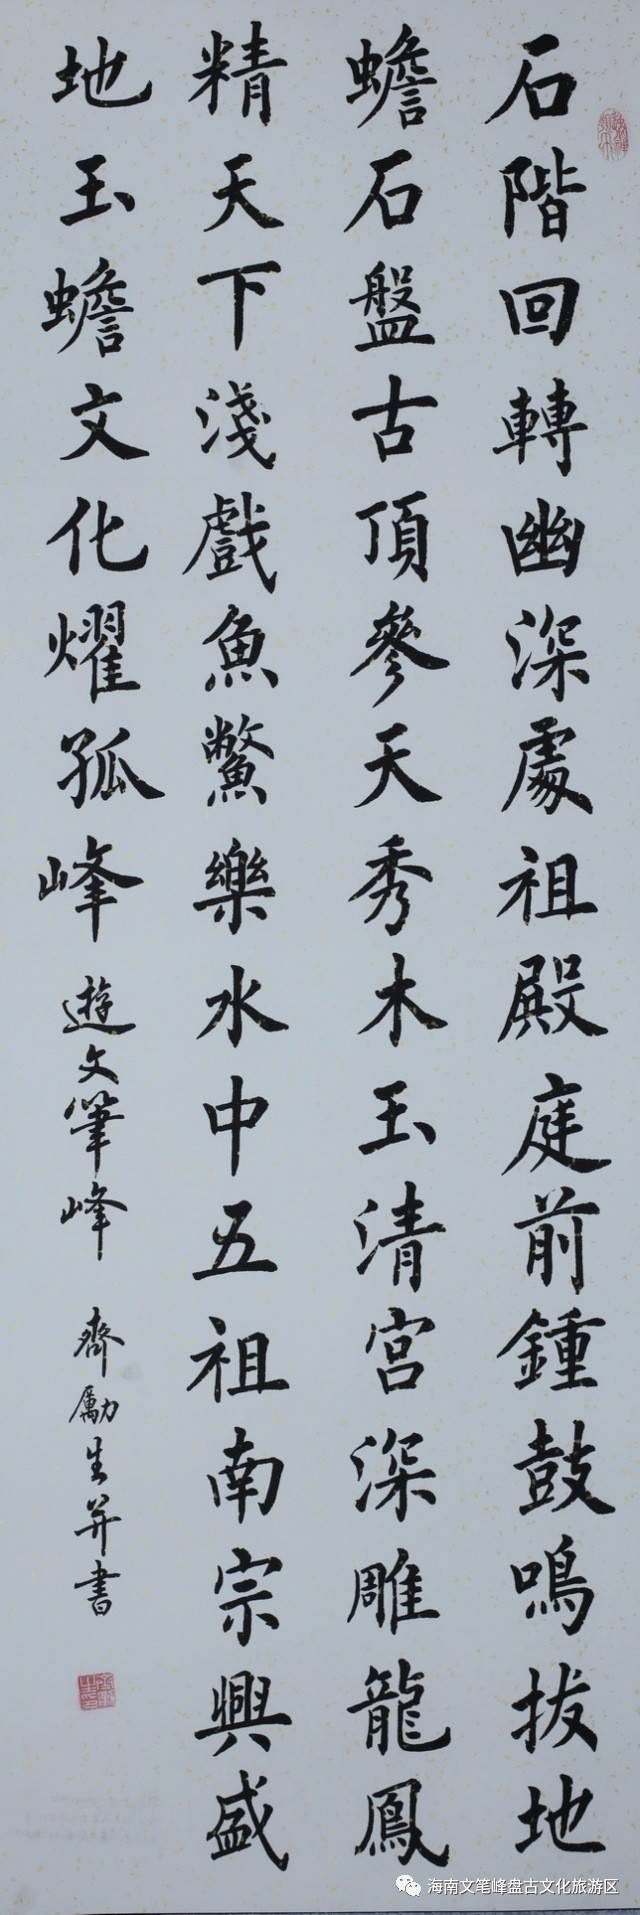 石階回轉幽深處祖殿庭前鍾鼓鳴拔地
蟾石盤古頂參天秀木玉清宮深雕龍鳳
精天下淺戲魚鱉樂水中五祖南宗興盛
地玉蟾文化耀孤峰 遊文筆峰 齊勵生并書
海南文笔峰盘古文化旅游区